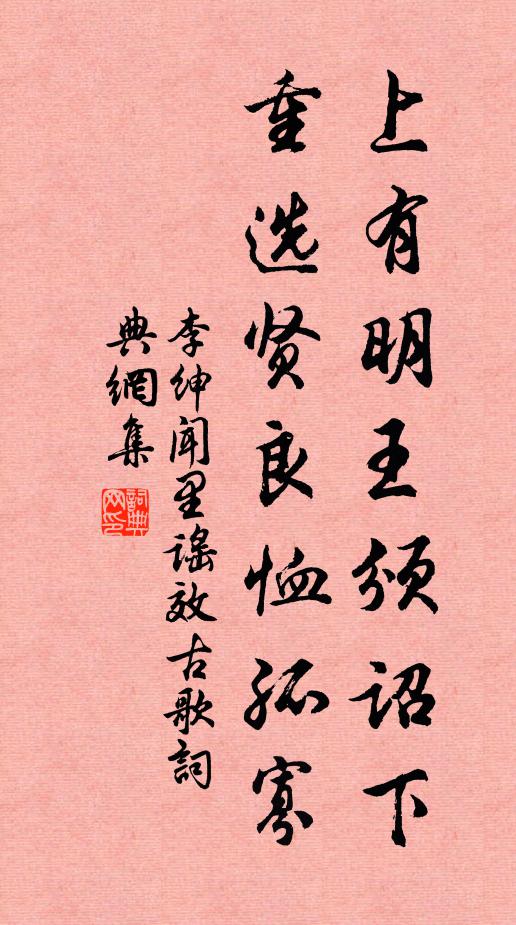 上有明王颁诏下
重选贤良恤孤寡
李紳闻里謠效古歌詞
典網集
詞典网印